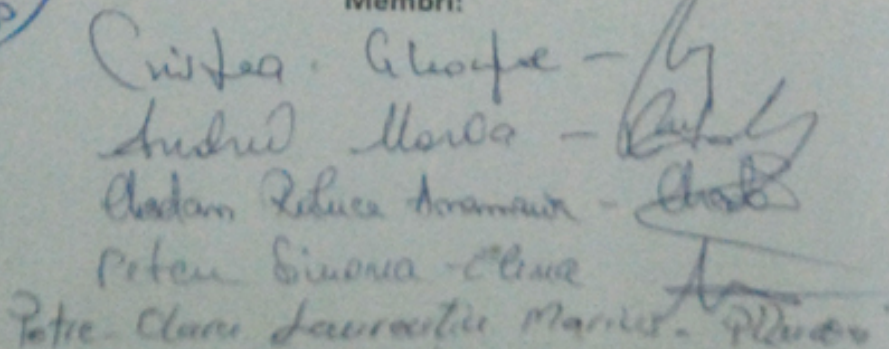 Membri:
Cristea Gheorghe -
Andrei Maria -
Raluca Anamaria -
Petcu Simona - Elena
Petre Laurentiu Marius -